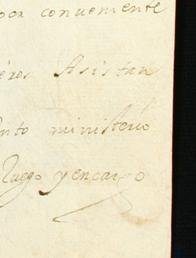 por conveniente
eros Asistan
ento ministerio
Ruego y encargo